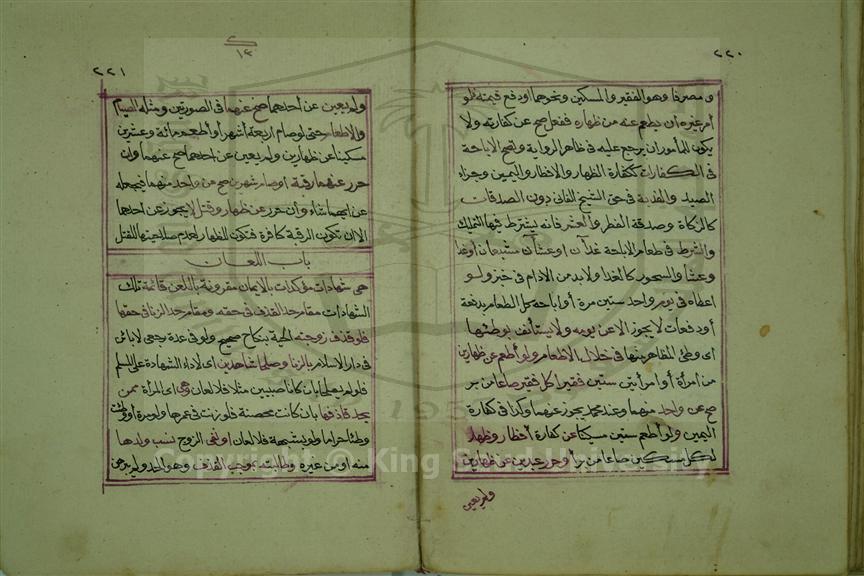 ٢٢٠
ومصرفا وهو الفقير والمسكين ونحوهما ودفع قيمته فلو
أمر غيره ان يطعم عنه من ظهاره ففعل صح عن كفارته ولا
يكون للمأمور ان يرجع عليه في ظاهر الرواية وتصح الاباحة
في الكفارات ككفارة الظهار والافطار واليمين وجزاء
الصيد والفدية في حق الشيخ الفاني دون الصدقات
كالزكاة وصدقة الفطر والعشر فانه يشترط فيها التمليك
والشرط في طعام الاباحة غدآن او عشآن مشبعان او غدا
وعشا والسحور كالغدا ولا بد من الادام في خبز ولو
اعطاه في يوم واحد ستين مرة أو اباحه كل الطعام بدفعة
أو دفعات لا يجوز الا عن يومه ولا يستأنف بوطئها
اى وطئ المظاهر منها في خلال الاطعام ولو أطعم عن ظهارين
من امرأة أو امرأتين ستين فقيرا كل فقير صاعا من بر
صح عن واحد منهما وعند محمد يجوز عنهما وكذا في كفارة
اليمين ولو أطعم ستين مسكينا عن كفارة افطار وظهار
لكل مسكين صاعا من بر أو حرر عبدين عن ظهارين
ولم يعين
٢٢١
١٣
ولم يعين عن احدهما صح عنهما في الصورتين ومثله الصيام
والاطعام حتى لو صام اربعة أشهر أو أطعم مائة وعشرين
مسكينا عن ظهارين ولم يعين عن احدهما صح عنهما وان
حرر عنهما رقبة أو صام شهرين صح عن واحد منهما فيجعله
عن ايهما شاء وأن حرر عن ظهار وقتل لا يجوز عن احدهما
الا ان تكون الرقبة كافرة فتكون للظهار لعدم صلاحيتها للقتل
باب اللعان
هى شهادات مؤكدات بالايمان مقرونة باللعن قائمة تلك
الشهادات مقام حد القذف في حقه ومقام حد الزنا في حقها
فلو قذف زوجته الحية بنكاح صحيح ولو في عدة رجعى لا بائن
في دار الاسلام بالزنا وصلحا شاهدين اى لاداء الشهادة على المسلم
فلو لم يصلحا بان كانا صبيين مثلا فلا لعان وهى اى المرأة ممن
يحد قاذفها بان كانت محصنة فلو زنت في عمرها ولو مرة أو وطئت
وطئا حراما ولو بشبهة فلا لعان او نفى الزوج نسب ولدها
منه او من غيره وطالبته بموجب القذف وهو الحد ولم يبرهن
Copyright © King Saud University